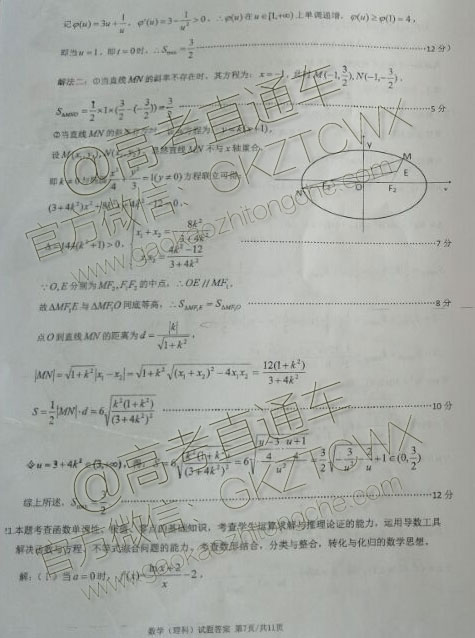 记φ(u)=3u+1/u, φ'(u)=3-1/u²>0, ∴φ(u)在u∈[1,+∞)上单调递增, φ(u)≥φ(1)=4,
即当u=1, 即t=0时, ∴S_max=3/2 12分)
解法二: ①当直线MN的斜率不存在时, 其方程为: x=-1, 此时M(-1,3/2), N(-1,-3/2),
=1/2×1×(3/2-(-3/2))=3/2 5分
②当直线MN的斜率存在时, 设其方程为: y=k(x+1),
设M(x₁,y₁), N(x₂,y₂), 显然直线MN不与x轴重合,
即k≠0 与椭圆x²/4+y²/3=1(y≠0)方程联立可得
(3+4k²)x²+8k²x+4k²-12=0,
Δ=144(k²+1)>0, x₁+x₂=-8k²/(3+4k²)
x₁x₂=(4k²-12)/(3+4k²) 7分
y
M
E
N
F₁
O
F₂
x
∵O,E分别为MF₂,F₁F₂的中点, ∴OE//MF₁,
故ΔMF₁E与ΔMF₁O同底等高, ∴S_ΔMF₁E=S_ΔMF₁O 8分
点O到直线MN的距离为d=|k|/√(1+k²),
|MN|=√(1+k²)|x₁-x₂|=√(1+k²)√((x₁+x₂)²-4x₁x₂)=12(1+k²)/(3+4k²)
S=1/2|MN|·d=6√(k²(1+k²)/(3+4k²)²) 10分
令u=3+4k²∈(3,+∞), 得: S=6√(k²(1+k²)/(3+4k²)²)=6√((u-3)/4·(u+1)/4/u²)=3/2√(-3/u²-2/u+1)∈(0,3/2)
综上所述, S_max=3/2 12分
21.本题考查函数单调性、零点的基础知识, 考查学生运算求解与推理论证的能力, 运用导数工具
解决函数与方程、不等式综合问题的能力, 考查数形结合, 分类与整合, 转化与化归的数学思想。
解: 当a=0时, (lnx+2)/x-2,
数学(理科)试题答案 第7页/共11页
@高考直通车
官方微信: GKZTCWX
www.gaokaozhitongche.com
@高考直通车
官方微信: GKZTCWX
www.gaokaozhitongche.com